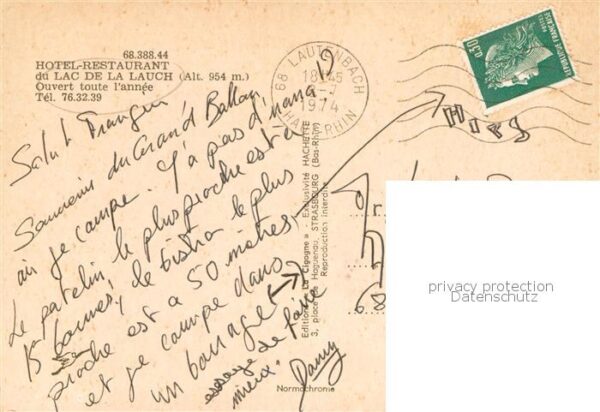 68.388.44
HOTEL-RESTAURANT
du LAC DE LA LAUCH (Alt. 954 m.)
Ouvert toute l'année
Tél. 76.32.39
Salut Frangin
Souvenir du Grand Ballon
où je campe. Y'a pas d'nana
Le patelin le plus proche est à
15 bornes, le bistrot le plus
proche est à 50 mètres,
et je campe dans
un barrage
essaye de faire
mieux"
Dany
Normochrome
Editions "La Cigogne" - Exclusivité HACHETTE
3, place de Haguenau, STRASBOURG (Bas-Rhin)
Reproduction interdite
68 LAUTENBACH
18H45
1974
HAUT-RHIN
0,30
POSTES
REPUBLIQUE FRANÇAISE
68
privacy protection
Datenschutz